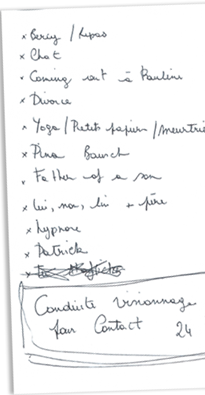 x Bercy / Repas
x Chat
x Coming out à Pauline
x Divorce
x Yoga / Petits papiers / meurtrie
x Pina Bausch
x Father of a son
x lui, moi, lui + père
x hypnose
x Patrick
x
Conduite visionnage
pour Contact 24